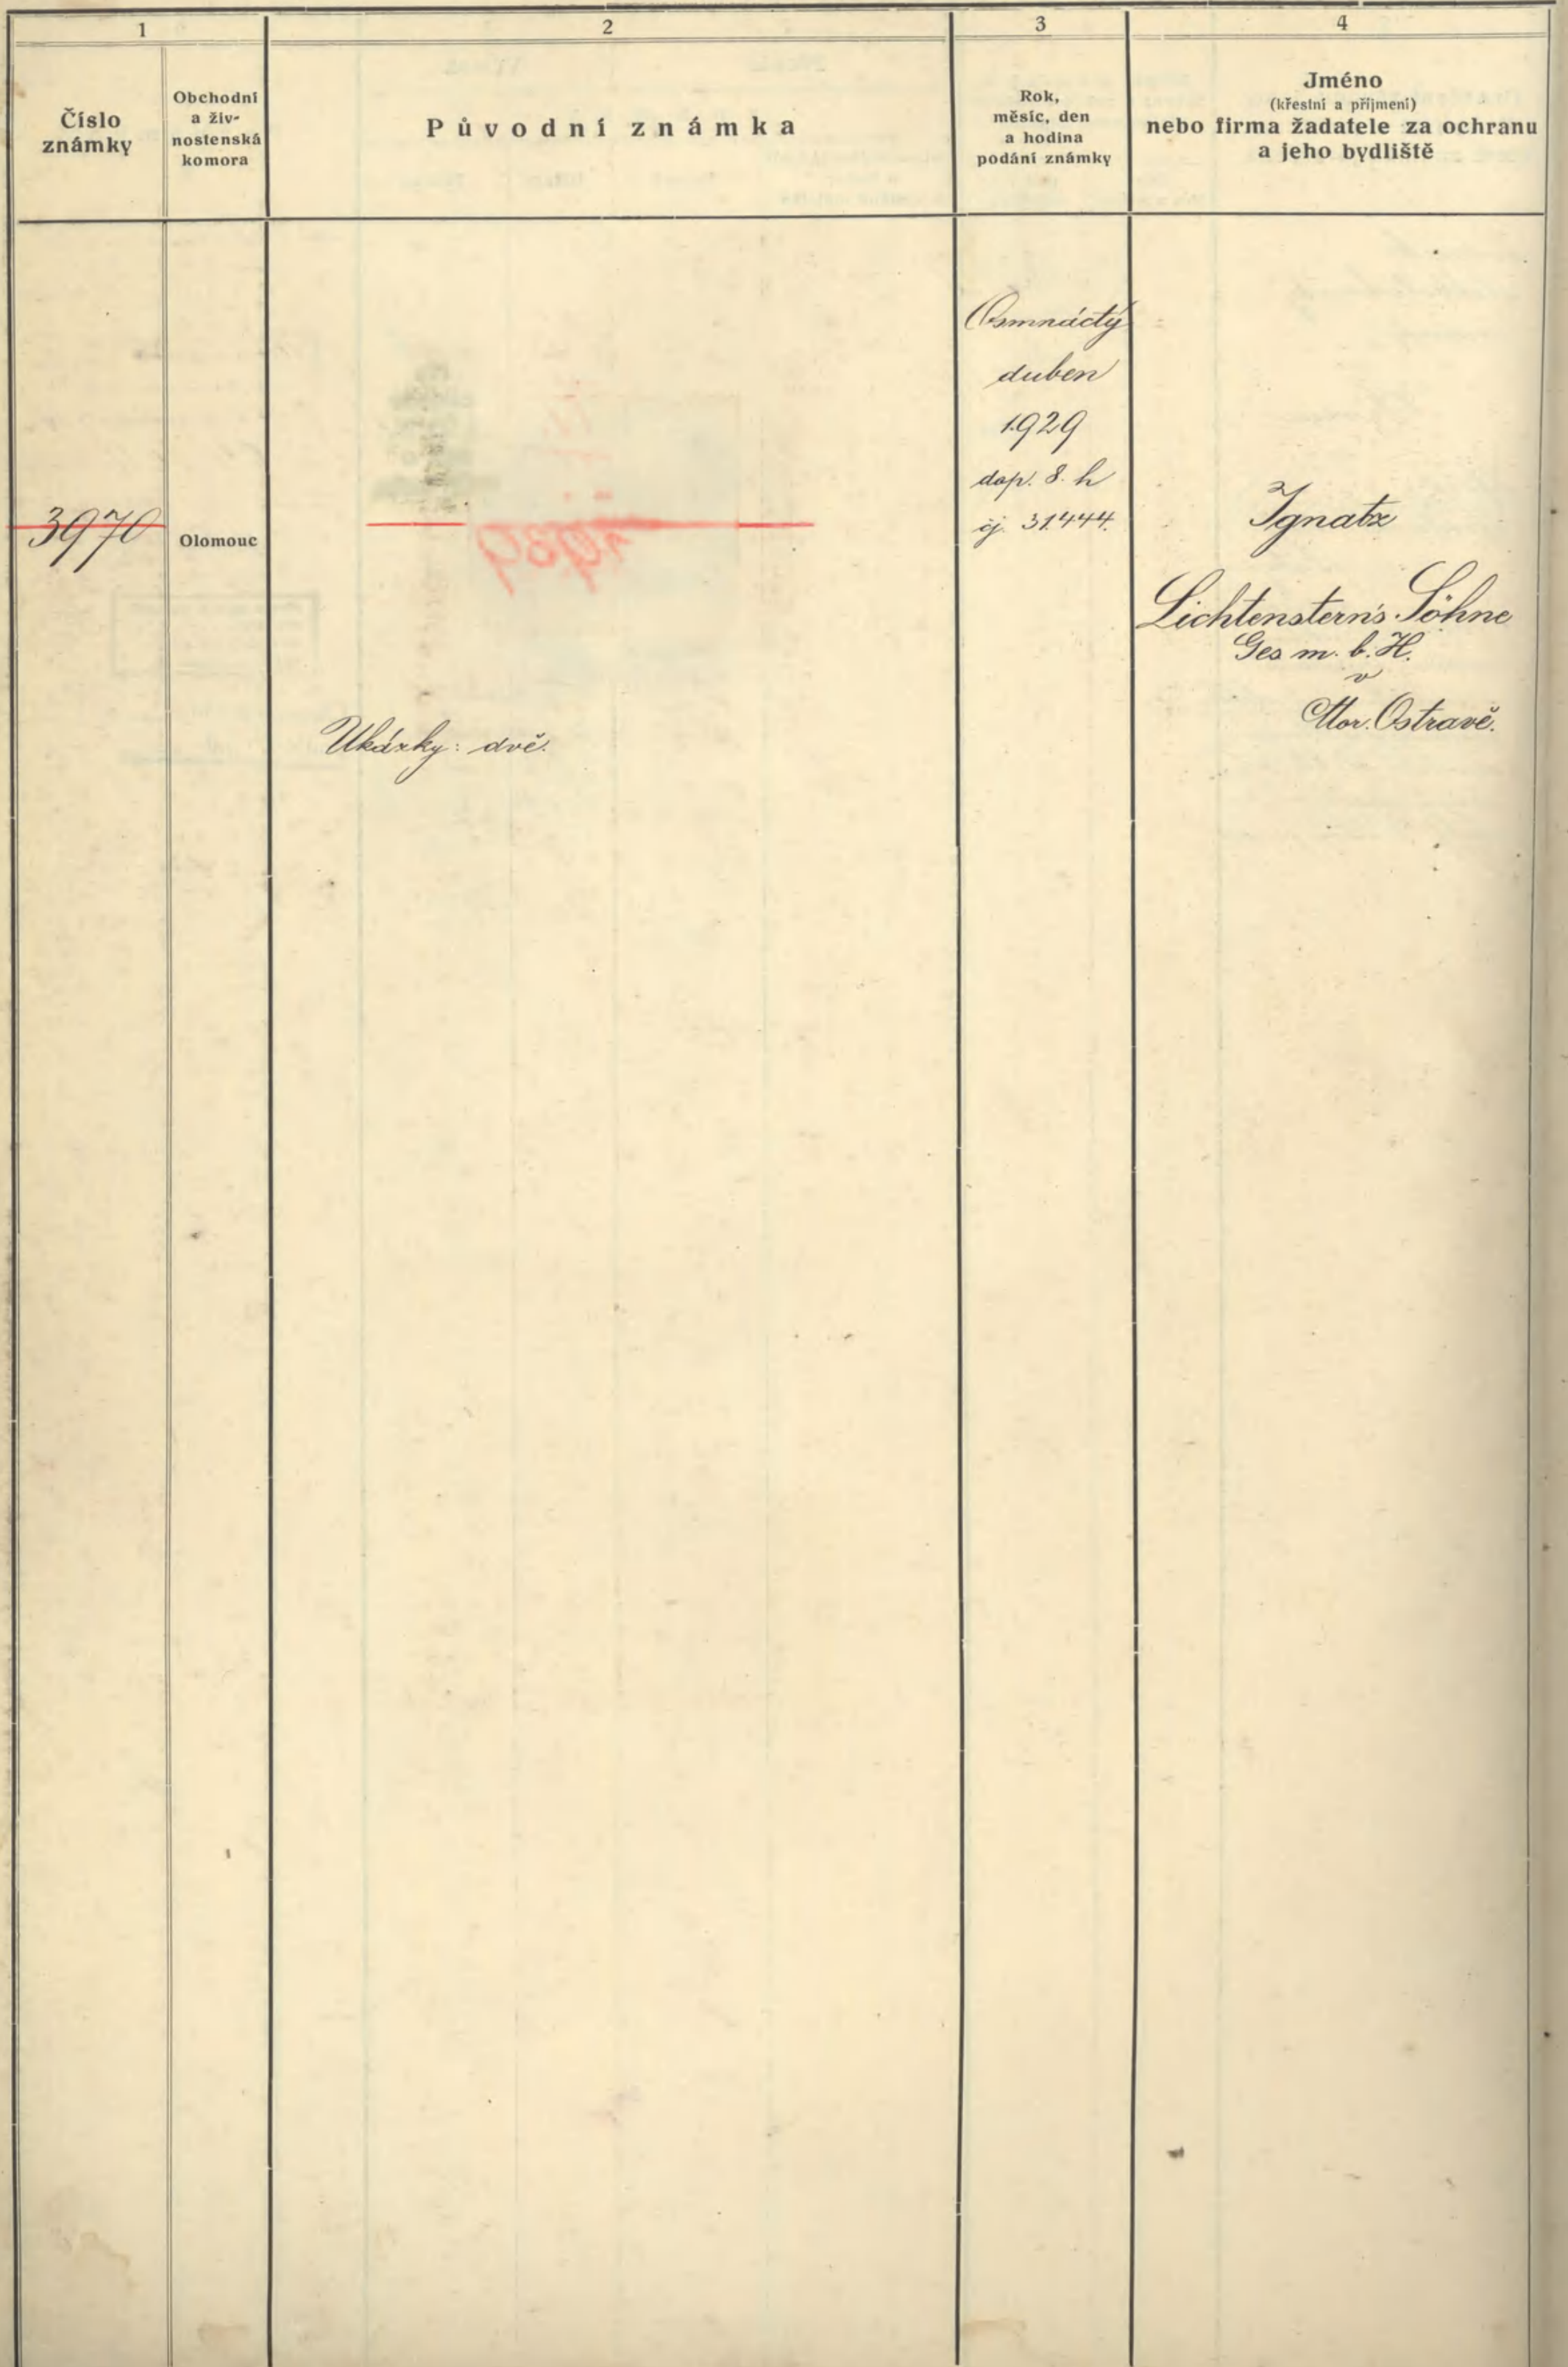 1
2
3
4
Číslo
známky
Obchodní
a živ-
nostenská
komora
Původní známka
Rok,
měsíc, den
a hodina
podání známky
Jméno
(křestní a příjmení)
nebo firma žadatele za ochranu
a jeho bydliště
3970
Olomouc
Ukázky: dvě.
Osmnáctý
duben
1929
dop. 8. h
čj. 31444.
Ignatz
Lichtenstern's Söhne
Ges m. b. H.
v
Mor. Ostravě.